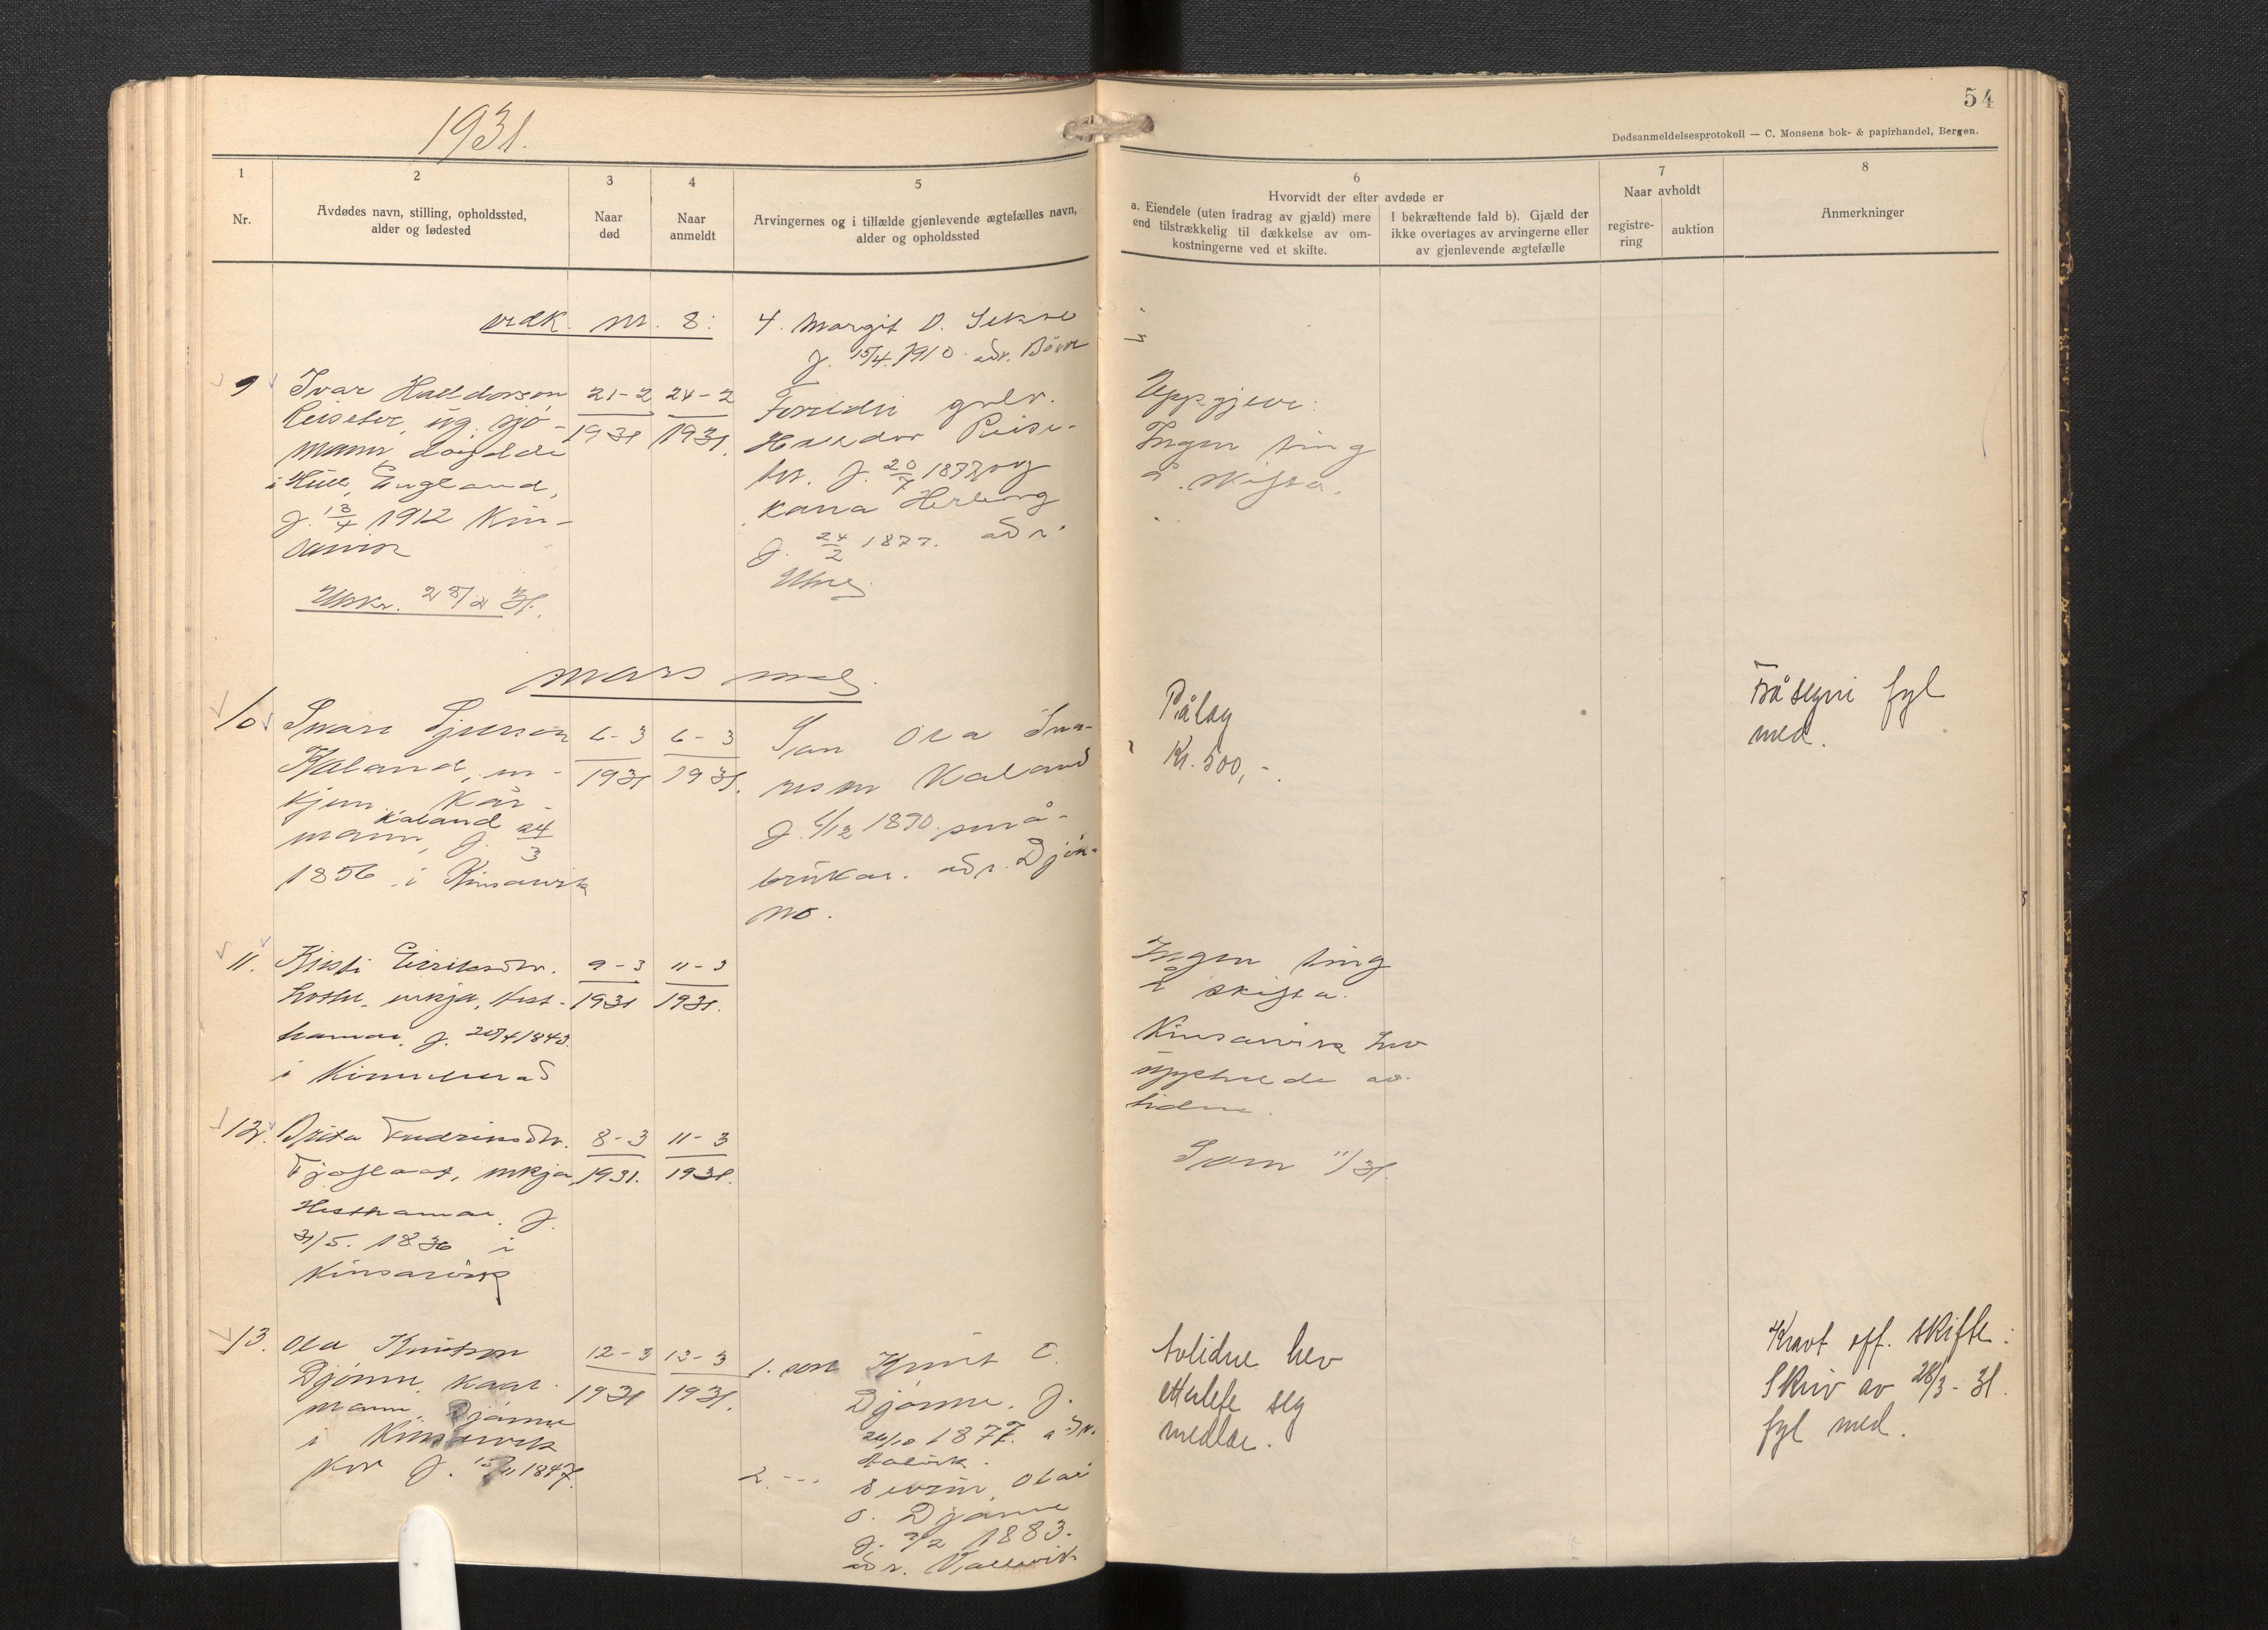 1931.
54
Dødsanmeldelsesprotokoll — C. Monsens bok- & papirhandel, Bergen.
1
Nr.
2
Avdødes navn, stilling, opholdssted,
alder og fødested
3
Naar
død
4
Naar
anmeldt
5
Arvingernes og i tilfælde gjenlevende ægtefælles navn,
alder og opholdssted
6
Hvorvidt der efter avdøde er
a. Eiendele (uten fradrag av gjæld) mere
end tilstrækkelig til dækkelse av om-
kostningerne ved et skifte.
I bekræftende fald b). Gjæld der
ikke overtages av arvingerne eller
av gjenlevende ægtefælle
7
Naar avholdt
registre-
ring
auktion
8
Anmerkninger
nr. 8:
4. Margit D. Sekse
f. 15/4. 1910. adr. Børve
9
Ivar Halldorson
Reiseter, ug. sjø-
mann, døydde
i Hull, England,
f. 13/4 1912 Kin-
sarvik
Utskr. 28/2 31.
21-2
1931
24-2
1931.
Foreldri
Halldor Reise-
ter. f. 20/7 1873 og
kona Herborg
f. 24/2 1877. adr.
Uppgjeve:
Ingen ting
å skifta.
mars
10
Kaland,
kjem. Kår-
mann, Kaland f. 24/3
1856 i Kinsarvik
6-3
1931
6-3
1931.
Son Ola Sva-
reson Kaland
f. 6/12 1890 små-
brukar. adr. Djøn-
no.
Pålag
Kr. 500,-.
Fråsegni fyl
med.
11.
Kristi Eiriksdtr.
Lothe, enkja, Hest-
hamar. f. 1843.
i
9-3
1931
11-3
1931.
Ingen ting
å skifta.
Kinsarvik hev
av-
lidne.
12.
Brita
enkja,
Hesthamar. f.
31/5. 1836 i
Kinsarvik
8-3
1931.
11-3
1931.
Som 11/31.
13.
Ola Knutson
Djønne, kaar-
mann, Djønne
i Kinsarvik
f. 1847.
12-3
1931
13-3
1931.
1. son Knut O.
Djønne. f.
24/10 1877. adr.
2. ---
Severin Olai
O. Djønne
f. 7/2 1883.
adr. Vallevik
Avlidne hev
etterlete seg
medlar.
Kravt off. skifte:
Skriv av 28/3-31.
fyl med.